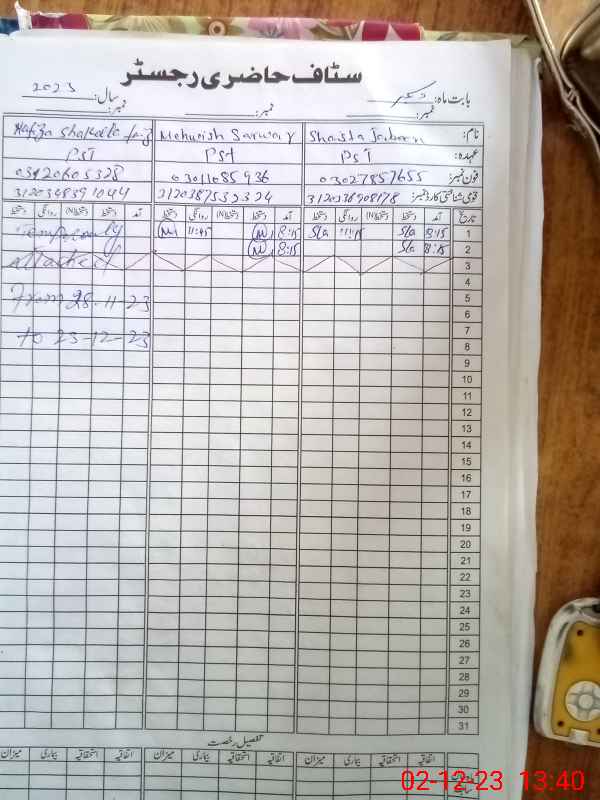 سٹاف حاضری رجسٹر
بابت ماہ: دسمبر سال: 2023
نمبر: نمبر: نمبر:
نام: Shaista Jabeen Mehwish Sarwar Hafiza Shakeela
عہدہ: PST PST PST
فون نمبر: 03027857655 03011085936 03420605328
قومی شناختی کارڈ نمبر:
تاریخ آمد دستخط دستخط(N) روانگی دستخط آمد دستخط دستخط(N) روانگی دستخط آمد دستخط دستخط(N) روانگی دستخط
1 8:15 Sta 11:15 Sta 8:15 M 11:45 M Temporarily
2 8:15 Sta 8:15 M
3 attached
4
5 From 28-11-23
6
7
8 to 23-12-23
9
10
11
12
13
14
15
16
17
18
19
20
21
22
23
24
25
26
27
28
29
30
31
تفصیل رخصت
اتفاقیہ استحقاقیہ بیماری میزان اتفاقیہ استحقاقیہ بیماری میزان اتفاقیہ استحقاقیہ بیماری میزان
02-12-23 13:40